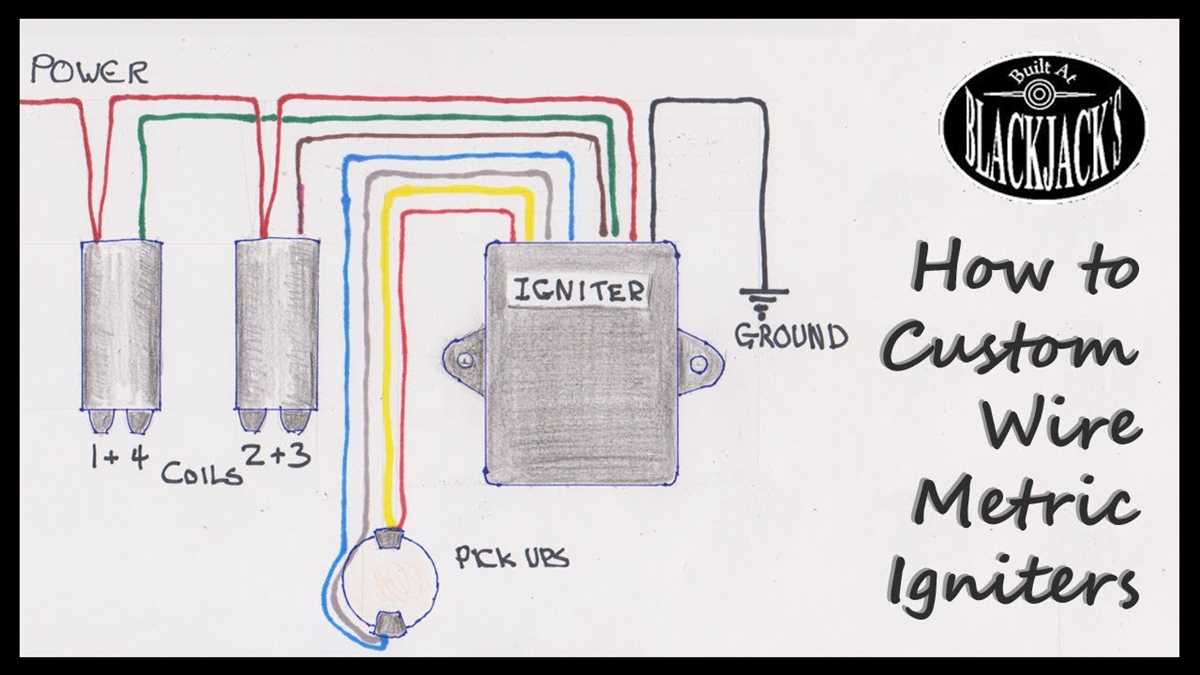 POWER
Built At
BLACKJACK'S
How to
Custom
Wire
Metric
Igniters
IGNITER
GROUND
1+4
2+3
COILS
PICK UPS